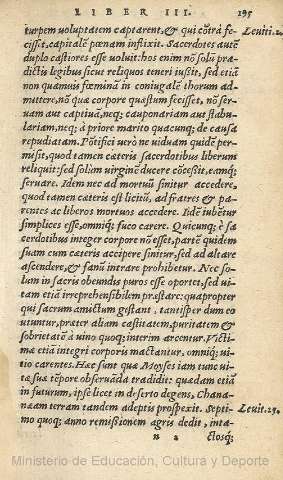 LIBER III. 195
turpem voluptatem captarent, & qui cõtrà fe- Leuiti.2
cisset, capitalē pœnam inflixit. Sacerdotes autē
duplo castiores esse uoluit: hos enim nõ solũ præ-
dictis legibus sicut reliquos teneri iußit, sed etiã
non quamuis fœminã in coniugalē thorum ad-
mittere, nõ quæ corpore quæstum fecisset, nõ ser-
uam aut captiuã, neq; cauponariam aut stabu-
lariam, neq; à priore marito quacunq; de causa
repudiatam. Põtifici uerò ne uiduam quidē per-
misit, quod tamen cæteris sacerdotibus liberum
reliquit: sed solùm uirginē ducere cõceßit, eamq;
seruare. Idem nec ad mortuũ sinitur accedere,
quod tamen cæteris est licitũ, ad fratres & pa-
rentes ac liberos mortuos accedere. Idē iubētur
simplices esse, omniq; fuco carere. Quicunq; è sa
cerdotibus integer corpore nõ esset, partē quidem
suam cum cæteris accipere sinitur, sed ad altare
ascendere, & fanũ intrare prohibetur. Nec so-
lum in sacris obeundis puros esse oportet, sed ui-
tam etiã irreprehensibilem præstare: quapropter
qui sacrum amictum gestant, tantisper dum eo
utuntur, præter aliam castitatem, puritatem &
sobrietatẽ à uino quoq; interim arcentur. Victi-
mæ etiã integri corporis mactantur, omniq; ui-
tio carentes. Hæc sunt quæ Moyses iam tunc ui-
tæ suæ tẽpore obseruãda tradidit: quædam etiã
in futurum, ipse licet in deserto degens, Chana-
næam terram tandem adeptis prospexit. Septi- Leuit.25.
mo quoq; anno remißionem agris dedit, inta-
n 2 ctosq;
Ministerio de Educación, Cultura y Deporte